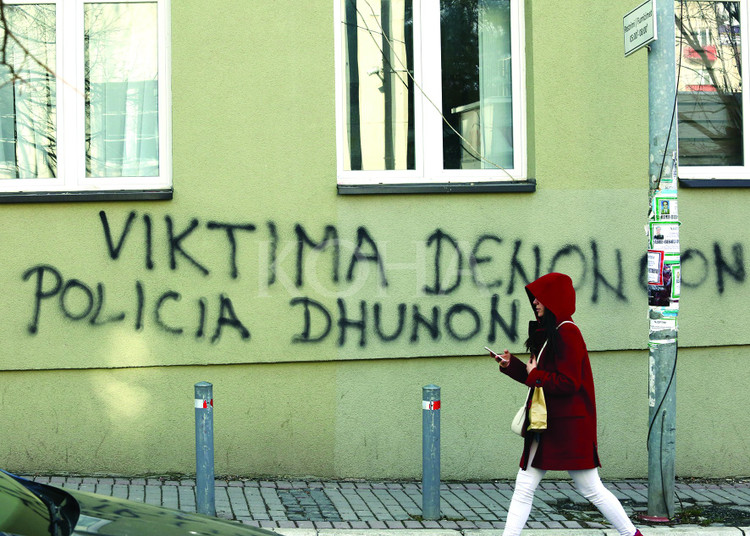 VIKTIMA DENONCON
POLICIA DHUNON
KOHA